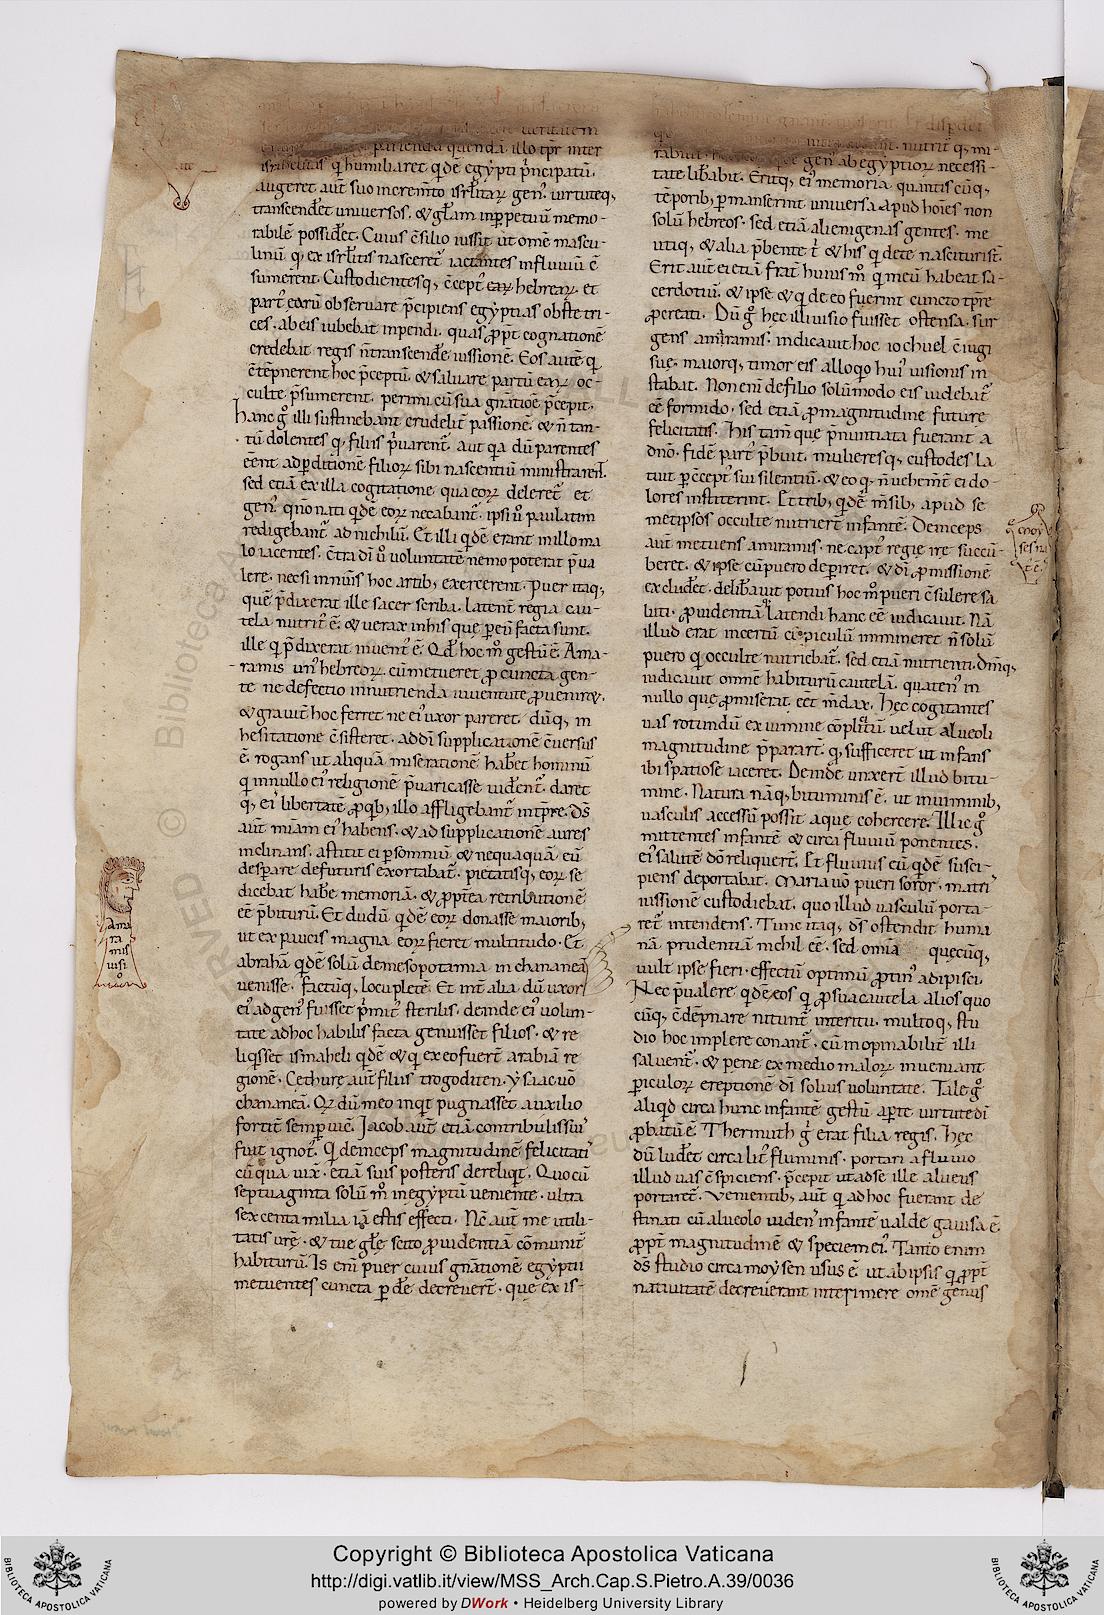 ueritatem
pariendu quendā. illo tpr̄ inter
isrl̄ielitas q̄ humiliaret q̄dē egẏpti p̄ncipatū.
augeret aut̄ suo increm̄to isrl̄itaꝝ gen᷒. uirtuteq,
transcendet uniuersos. & gl̄am inp̱petuū memo-
rabilē possidet̄. Cuius c̄silio iussit ut om̄e mascu-
linū q, ex isrl̄itis nasceret̄ iactantes influuiū c̄
sumerent. Custodientesq, c̄cept̄ eaꝝ hebreaꝝ. et
part̄ eorū obseruare p̄cipiens egẏptias obstetri-
ces. ab eis iubebat inpendi. quas ꝓpt̄ cognationē
credebat regis n̄ transcendere iussionē. Eos autē q̄
c̄tēpnerent hoc p̄ceptū. & saluare partū eaꝝ oc-
culte p̄sumerent. perimi cū sua gn̄atiōe p̄cepit.
Hanc g̊ illi sustinebant crudelit̄ passionē. & n̄ tan-
tū dolentes q, filiis p̄uarent̄. aut q̄a dū parentes
c̄ent ad p̱ditionē filioꝝ sibi nascentiū ministrarent̄.
sed etiā ex illa cogitatione qua eoꝝ deleret̄ et
gen᷒. qn̄o nati q̄dē eoꝝ necabant̄. ipsi u̇ paulatim
redigebant̄ ad nichilū. Et illi q̄dē erant in illo ma
lo iacentes. c̄tra dī u̇ uoluntatē nemo poterat p̄ua
lere. nec si innumis hoc artib, exercerent. Puer itaq,
quē p̄dixerat ille sacer scriba. latent̄ regia cau-
tela nutrit᷒ ē. & uerax in his que p̱ eū facta sunt.
ille q̄ p̄dixerat inuent᷒ ē. Qd̄ hoc m̊ gestū ē. Ama-
ramis un᷒ hebreoꝝ. cū metueret ꝓ cuncta gen-
te ne defectio in nutrienda iuuentute ꝓueniret.
& grauit̄ hoc ferret ne ei᷒ uxor pareret dūq, in
hesitatione c̄sisteret. ad dī supplicationē c̄uersus
ē. rogans ut aliquā miserationē haberet hominū
q̄ in nullo ei᷒ religionē p̄uaricasse uident̄. daret
q, ei᷒ libertatē ꝓ qb, illo affligebant̄ intp̄re. D̄s
aut̄ miām ei᷒ habens. & ad supplicationē aures
inclinans. astitit ei p̱ somniū. & nequaquā eū
desp̱are de futuris exortabat̄. pietatisq, eoꝝ se
dicebat habere memoriā. & ꝓpt̄ea retributionē
eē p̄biturū. Et dudū q̄dē eoꝝ donasse maiorib,
ut ex paucis magna eoꝝ fieret multitudo. Et
abrahā q̄dē solū de mesopotamia in chananeā
uenisse. factūq, locupletē. Et int̄ alia. dū uxor
ei᷒ ad gen᷒ fuisset p̄mit᷒ sterilis. deinde ei᷒ uolun-
tate ad hoc habilis facta genuisset filios. & re
liqsset ismaheli q̄dē & q̄ ex eo fuer̄t arabiā re
gionē. Cethure aut̄ filiis trogoditen. ẏsaac uō
chananeā. Qꝝ dū meo inq̄t pugnasset auxilio
fortit̄ semp̱ uic̄. Iacob aut̄ etiā contribulissui᷒
fuit ignot᷒. Q̄ deinceps magnitudinē felicitati᷒
cū qua uix̄. etiā suis posteris dereliqt̄. Quo cū
septuaginta solū m̊ in egẏptū ueniente. ultra
sexcenta milia iā estis effecti. Nc̄ aut̄ me utili-
tatis ur̄ę. & tue gl̄e scito ꝓuidentiā cōmunit̄
habiturū. Is eni puer cuius gn̄ationē egẏptii
metuentes cuncta p̱dere decreuer̄t. que ex is-
habebit
Et dispdet
nutrit᷒ q, mi-
rabilit̄
gen᷒ ab egẏptioꝝ necessi-
tate lib̄abit. Eritq, ei᷒ memoria quantis cūq,
tēporib, p̱manserint uniuersa apud hoīes non
solū hebreos. sed etiā alienigenas gentes. me
utiq, & alia p̄bente t̄ & his q̄ de te nascituri st̄.
Erit aut̄ ei etiā frat̄ huius m̊ q̄ meū habeat sa-
cerdotiū. & ipse & q̄ de eo fuerint cuncto tp̄re
ꝓcreati. Dū g̊ hec illi uisio fuisset ostensa. sur
gens am̄ramis. indicauit hoc iochuel c̄iugi
sue. maiorq, timor eis alloqo hui᷒ uisionis in
stabat. Non eni de filio solūmodo eis uidebat̄
eē formido. sed etiā ꝓ magnitudine future
felicitatis. His tam̄ que p̄nuntiata fuerant a
dn̄o. fidē part᷒ p̄buit. mulieresq, custodes la
tuit p̱ c̄cept᷒ sui silentiū. & eo q, n̄ uehem̄t ei do-
lores institerint. Et trib, q̄dē m̄sib, apud se
metipsos occulte nutrier̄t infantē. Deinceps
aut̄ metuens amramis. ne capt᷒ regie ire succū-
beret. & ipse cū puero dep̱iret. & dī ꝓmissionē
excludet. delib̄auit potius hoc m̊ pueri c̄sulere sa
luti. ꝓuidentiā latendi hanc eē iudicauit. Nā
illud erat incertū cū p̱iculū immineret n̄ solū
puero q̄ occulte nutriebat̄. sed etiā nutrienti. dn̄iq,
iudicauit omnē habiturū cautelā. quaten᷒ in
nullo que ꝓmiserat eēt m̄dax. Hęc cogitantes
uas rotundū ex uimine cōplx̄tū. uelut alueoli
magnitudine p̄parar̄t. q, sufficeret ut infans
ibi spatiose iaceret. Deinde unxer̄t illud bitu-
mine. Natura nāq, bituminis ē. ut in uiminib,
uasculis accessū possit aque cohercere. Illic g̊
mittentes infantē & circa fluuiū ponentes.
ei᷒ salutē dō reliquer̄t. Et fluuius eū q̄dē susci-
piens deportabat. Maria uō pueri soror. matri᷒
iussione custodiebat. quo illud uasculū porta-
ret̄ intendens. Tunc itaq, d̄s ostendit huma
nā prudentiā nichil eē. sed omia quecūq,
uult ipse fieri. effectū optimū ꝓtin᷒ adipisci.
Nec p̄ualere q̄dē eos q̄ ꝓ sua cautela alios quo
cūq, c̄dēpnare nitunt̄ interitu. multoq, stu
dio hoc implere conant̄. cū inopinabilit̄ illi
saluent̄. & pene ex medio maloꝝ inueniant
p̱iculoꝝ ereptionē dī solius uoluntate. Tale g̊
aliqd circa hunc infantē gestū ap̱te uirtute dī
ꝓbatū ē. Thermuth g̊ erat filia regis. Hęc
dū luderet circa lit᷒ fluminis. portari a fluuio
illud uas c̄spiciens. p̄cepit ut ad se ille alueus
portaret̄. Venientib, aut̄ q̄ ad hoc fuerant de
stinati cū alueolo uidens infantē ualde gauisa ē.
ꝓpt̄ magnitudinē & speciem ei᷒. Tanto enim
d̄s studio circa moẏsen usus ē. ut ab ipsis q̄ ꝓpt̄
natiuitatē decreuerant interimere om̄e genus
Ama
ra
mis
uisi
o
Q̄
moy
ses na
t᷒ ē
Copyright © Biblioteca Apostolica Vaticana
http://digi.vatlib.it/view/MSS_Arch.Cap.S.Pietro.A.39/0036
powered by DWork • Heidelberg University Library
BIBLIOTECA APOSTOLICA VATICANA
BIBLIOTECA APOSTOLICA VATICANA